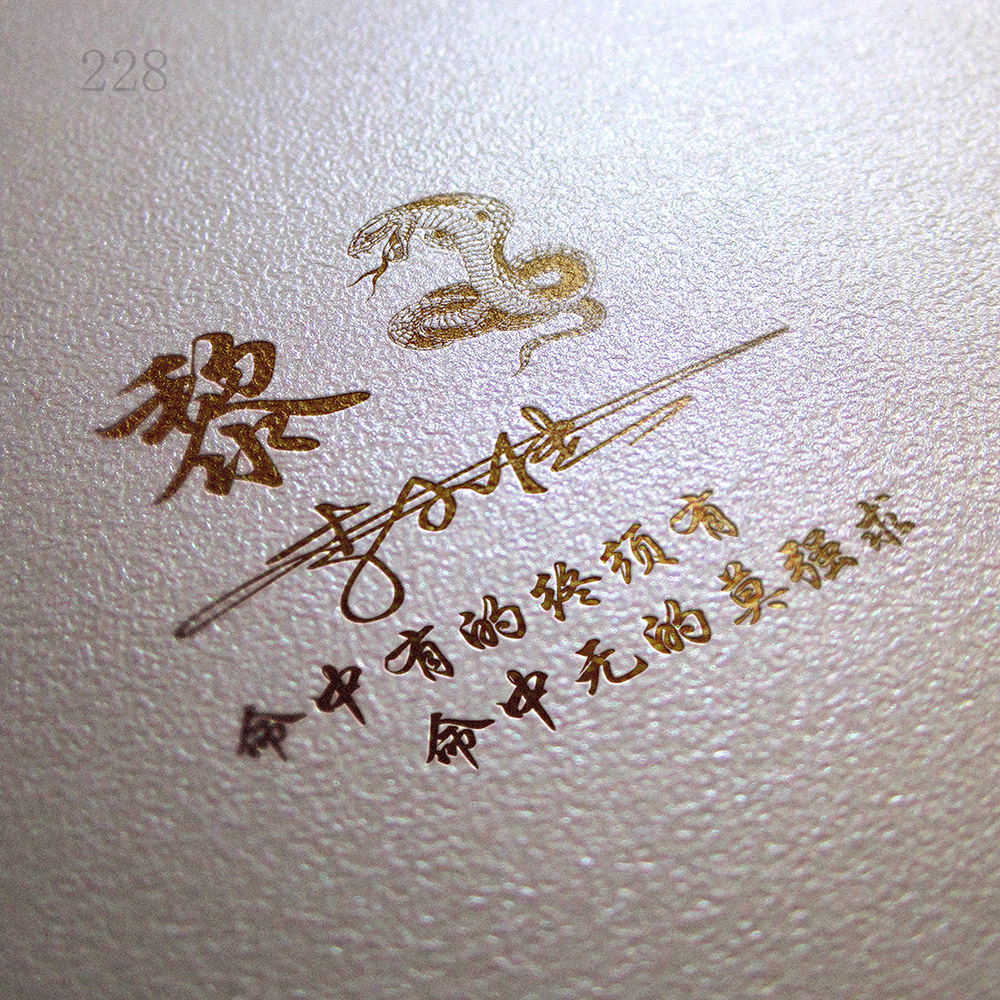 228
黎
命中有的终须有
命中无的莫强求